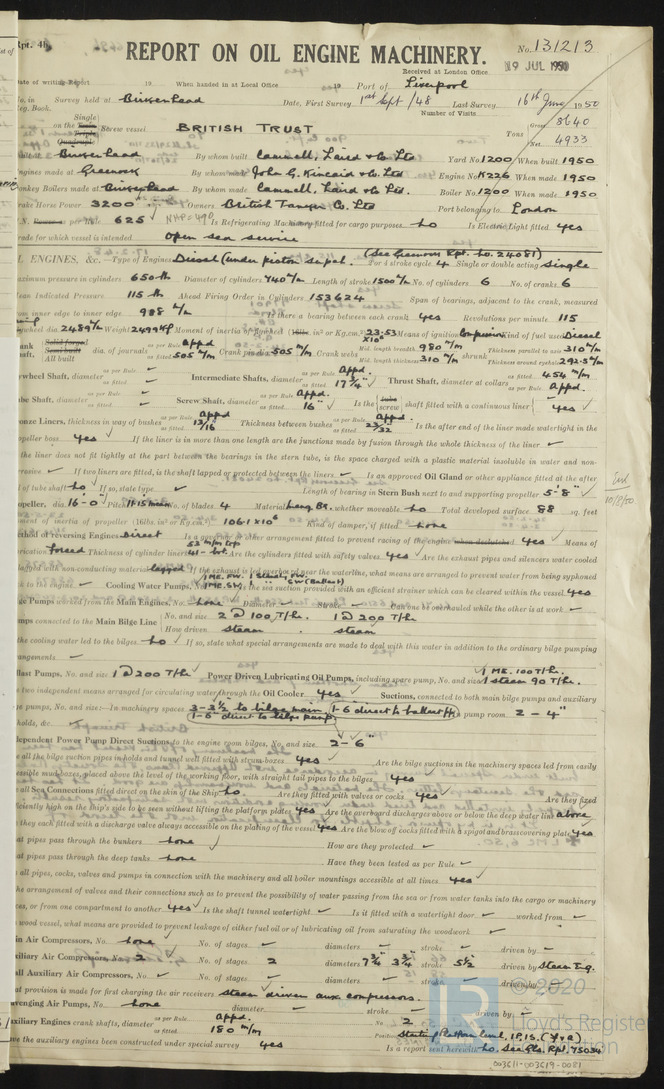 Rpt. 4b
REPORT ON OIL ENGINE MACHINERY.
No. 131213
Received at London Office 19 JUL 1950
Date of writing Report 19 When handed in at Local Office 19 Port of Liverpool
No. in Survey held at Birkenhead Date, First Survey 1st Sept /48 Last Survey 16th June 1950
Reg. Book. Number of Visits
on the Single Triple Quadruple Screw vessel BRITISH TRUST Tons Gross 8640 Net 4933
Built at Birkenhead By whom built Cammell, Laird & Co. Ltd Yard No 1200 When built 1950
Engines made at Greenock By whom made John G. Kincaid & Co. Ltd Engine No K226 When made 1950
Donkey Boilers made at Birkenhead By whom made Cammell, Laird & Co. Ltd. Boiler No 1200 When made 1950
Brake Horse Power 3200 Owners British Tanker Co. Ltd Port belonging to London
as per Rule 625 NHP = 490 Is Refrigerating Machinery fitted for cargo purposes no Is Electric Light fitted yes
Trade for which vessel is intended Open sea service
OIL ENGINES, &c.—Type of Engines Diesel (under piston supal. (See Greenock Rpt. No. 24081) 2 or 4 stroke cycle 4 Single or double acting Single
Maximum pressure in cylinders 650 lb Diameter of cylinders 740 m/m Length of stroke 1500 m/m No. of cylinders 6 No. of cranks 6
Mean Indicated Pressure 115 lb Ahead Firing Order in Cylinders 153624 Span of bearings, adjacent to the crank, measured
from inner edge to inner edge 988 m/m Is there a bearing between each crank yes Revolutions per minute 115
Flywheel dia. 2489 m/m Weight 2499 kg Moment of inertia of flywheel (16lbs. in² or Kg.cm.²) 23.53 x10⁶ Means of ignition Compression Kind of fuel used Diesel
Crank Shaft, Solid forged Semi built All built dia. of journals as per Rule Appd as fitted 505 m/m Crank pin dia. 505 m/m Crank webs Mid. length breadth 980 m/m Mid. length thickness 310 m/m shrunk Thickness parallel to axis 310 m/m Thickness around eyehole 292.5 m/m
Flywheel Shaft, diameter as per Rule ✓ as fitted ✓ Intermediate Shafts, diameter as per Rule Appd. as fitted 17 3/4" ✓ Thrust Shaft, diameter at collars as fitted 454 m/m as per Rule Appd.
Tube Shaft, diameter as per Rule ✓ as fitted ✓ Screw Shaft, diameter as per Rule Appd. as fitted 16" ✓ Is the tube screw shaft fitted with a continuous liner yes ✓
Bronze Liners, thickness in way of bushes as per Rule Appd as fitted 13/16 Thickness between bushes as per Rule Appd. as fitted 23/32 Is the after end of the liner made watertight in the
propeller boss yes ✓ If the liner is in more than one length are the junctions made by fusion through the whole thickness of the liner ✓
If the liner does not fit tightly at the part between the bearings in the stern tube, is the space charged with a plastic material insoluble in water and non-
corrosive ✓ If two liners are fitted, is the shaft lapped or protected between the liners ✓ Is an approved Oil Gland or other appliance fitted at the after
end of tube shaft no If so, state type ✓ Length of bearing in Stern Bush next to and supporting propeller 5'-8" ✓
10/8/50
Propeller, dia. 16'-0" Pitch 11'-1.5" mean No. of blades 4 Material Mang. Bz. whether moveable no Total developed surface 88 sq. feet
Moment of inertia of propeller (16lbs. in² or Kg.cm.²) 106.1 x 10⁶ Kind of damper, if fitted none
Method of reversing Engines Direct Is a governor or other arrangement fitted to prevent racing of the engine when declutched yes ✓ Means of
lubrication forced Thickness of cylinder liners 52 m/m top 41 - bot. Are the cylinders fitted with safety valves yes ✓ Are the exhaust pipes and silencers water cooled
or lagged with non-conducting material lagged If the exhaust is led overboard near the waterline, what means are arranged to prevent water from being syphoned
back to the engine ✓ Cooling Water Pumps, No. 1 ME. FW. 1 Steam, FW. 1 ME. SW. " SW (Ballast) Is the sea suction provided with an efficient strainer which can be cleared within the vessel yes
Bilge Pumps worked from the Main Engines, No. none Diameter ✓ Stroke ✓ Can one be overhauled while the other is at work ✓
Pumps connected to the Main Bilge Line No. and size 2 @ 100 T/hr. 1 @ 200 T/hr
How driven steam . steam
Is the cooling water led to the bilges no ✓ If so, state what special arrangements are made to deal with this water in addition to the ordinary bilge pumping
arrangements ✓
Ballast Pumps, No. and size 1 @ 200 T/hr ✓ Power Driven Lubricating Oil Pumps, including spare pump, No. and size 1 ME. 100 T/hr. 1 steam 90 T/hr.
Are two independent means arranged for circulating water through the Oil Cooler yes ✓ Suctions, connected to both main bilge pumps and auxiliary
bilge pumps, No. and size:—In machinery spaces 3-3½ to bilge main 1-6" direct to ballast pp 1-6" direct to bilge pump In pump room 2 - 4"
In holds, &c. ✓
Independent Power Pump Direct Suctions to the engine room bilges, No. and size 2-6"
Are all the bilge suction pipes in holds and tunnel well fitted with strum boxes yes ✓ Are the bilge suctions in the machinery spaces led from easily
accessible mud boxes, placed above the level of the working floor, with straight tail pipes to the bilges yes ✓
Are all Sea Connections fitted direct on the skin of the Ship no. Are they fitted with valves or cocks yes ✓ Are they fixed
sufficiently high on the ship's side to be seen without lifting the platform plates yes ✓ Are the overboard discharges above or below the deep water line above
Are they each fitted with a discharge valve always accessible on the plating of the vessel yes Are the blow off cocks fitted with a spigot and brass covering plate yes.
What pipes pass through the bunkers none How are they protected ✓
What pipes pass through the deep tanks none Have they been tested as per Rule ✓
Are all pipes, cocks, valves and pumps in connection with the machinery and all boiler mountings accessible at all times yes ✓
Is the arrangement of valves and their connections such as to prevent the possibility of water passing from the sea or from water tanks into the cargo or machinery
spaces, or from one compartment to another yes ✓ Is the shaft tunnel watertight ✓ Is it fitted with a watertight door ✓ worked from ✓
If a wood vessel, what means are provided to prevent leakage of either fuel oil or of lubricating oil from saturating the woodwork ✓
Main Air Compressors, No. none No. of stages ✓ diameters ✓ stroke ✓ driven by ✓
Auxiliary Air Compressors, No. 2 No. of stages 2 diameters 7¾ 3¾ stroke 5½ driven by Steam Eng.
Small Auxiliary Air Compressors, No. ✓ No. of stages ✓ diameters ✓ stroke ✓ driven by ✓
What provision is made for first charging the air receivers steam driven aux compressors.
Scavenging Air Pumps, No. none diameter ✓ stroke ✓ driven by ✓
Auxiliary Engines crank shafts, diameter as per Rule appd. as fitted 180 m/m No. 2 Position Starting Platform level, 1P, 1S. (Fwd)
Have the auxiliary engines been constructed under special survey yes Is a report sent herewith no, See Gls. Rpt. 75034
© 2020
Lloyd's Register
Foundation
003611-003619-0081